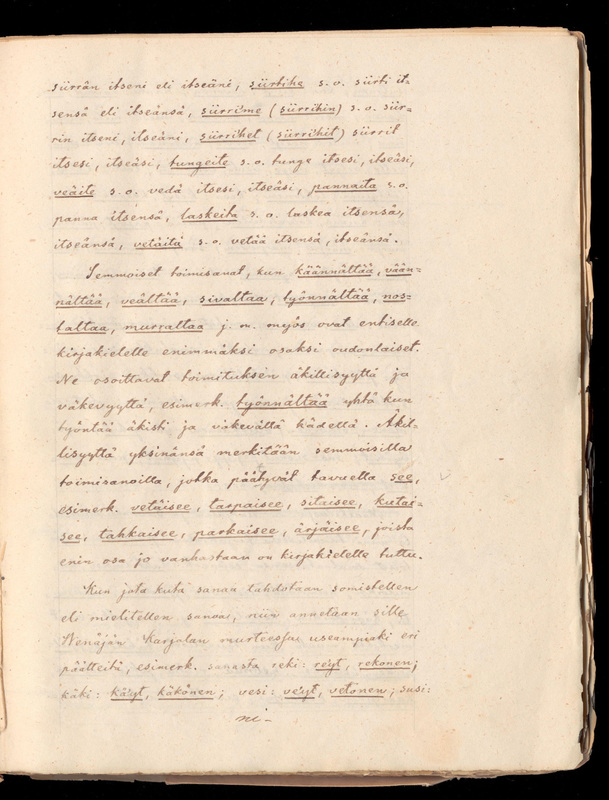 siirrän itseni eli itseäni, siirtihe s. o. siirti it-
sensä eli itseänsä, siirrime (siirrihin) s. o. siir-
rin itseni, itseäni, siirrihet (siirrihit) siirrit
itsesi, itseäsi, tungeite s. o. tunge itsesi, itseäsi,
veäite s. o. vedä itsesi, itseäsi, pannaita s. o.
panna itsensä, laskeita s. o. laskea itsensä,
itseänsä, vetäitä s. o. vetää itsensä, itseänsä.
Semmoiset toimisanat, kun käännältää, vään-
nältää, veältää, sivaltaa, työnnältää, nos-
taltaa, murraltaa j. m. myös ovat entiselle
kirjakielelle enimmäksi osaksi oudonlaiset.
Ne osoittavat toimituksen äkillisyyttä ja
väkevyyttä, esimerk. työnnältää yhtä kun
työntää äkisti ja väkevällä kädellä. Äkil-
lisyyttä yksinänsä merkitään semmoisilla
toimisanoilla, jotka päätyvät tavuella see,
esimerk. vetäisee, tarpaisee, sitaisee, kutai-
see, tahkaisee, parkaisee, ärjäisee, joista
enin osa jo vanhastaan on kirjakielelle tuttu.
Kun jota kuta sanaa tahdotaan somistellen
eli mielitellen sanoa, niin annetaan sille
Wenäjän Karjalan murteessa useampiaki eri
päätteitä, esimerk. sanasta reki: reyt, rekonen;
käki: käyt, käkönen; vesi: veyt, vetonen; susi:
ni-